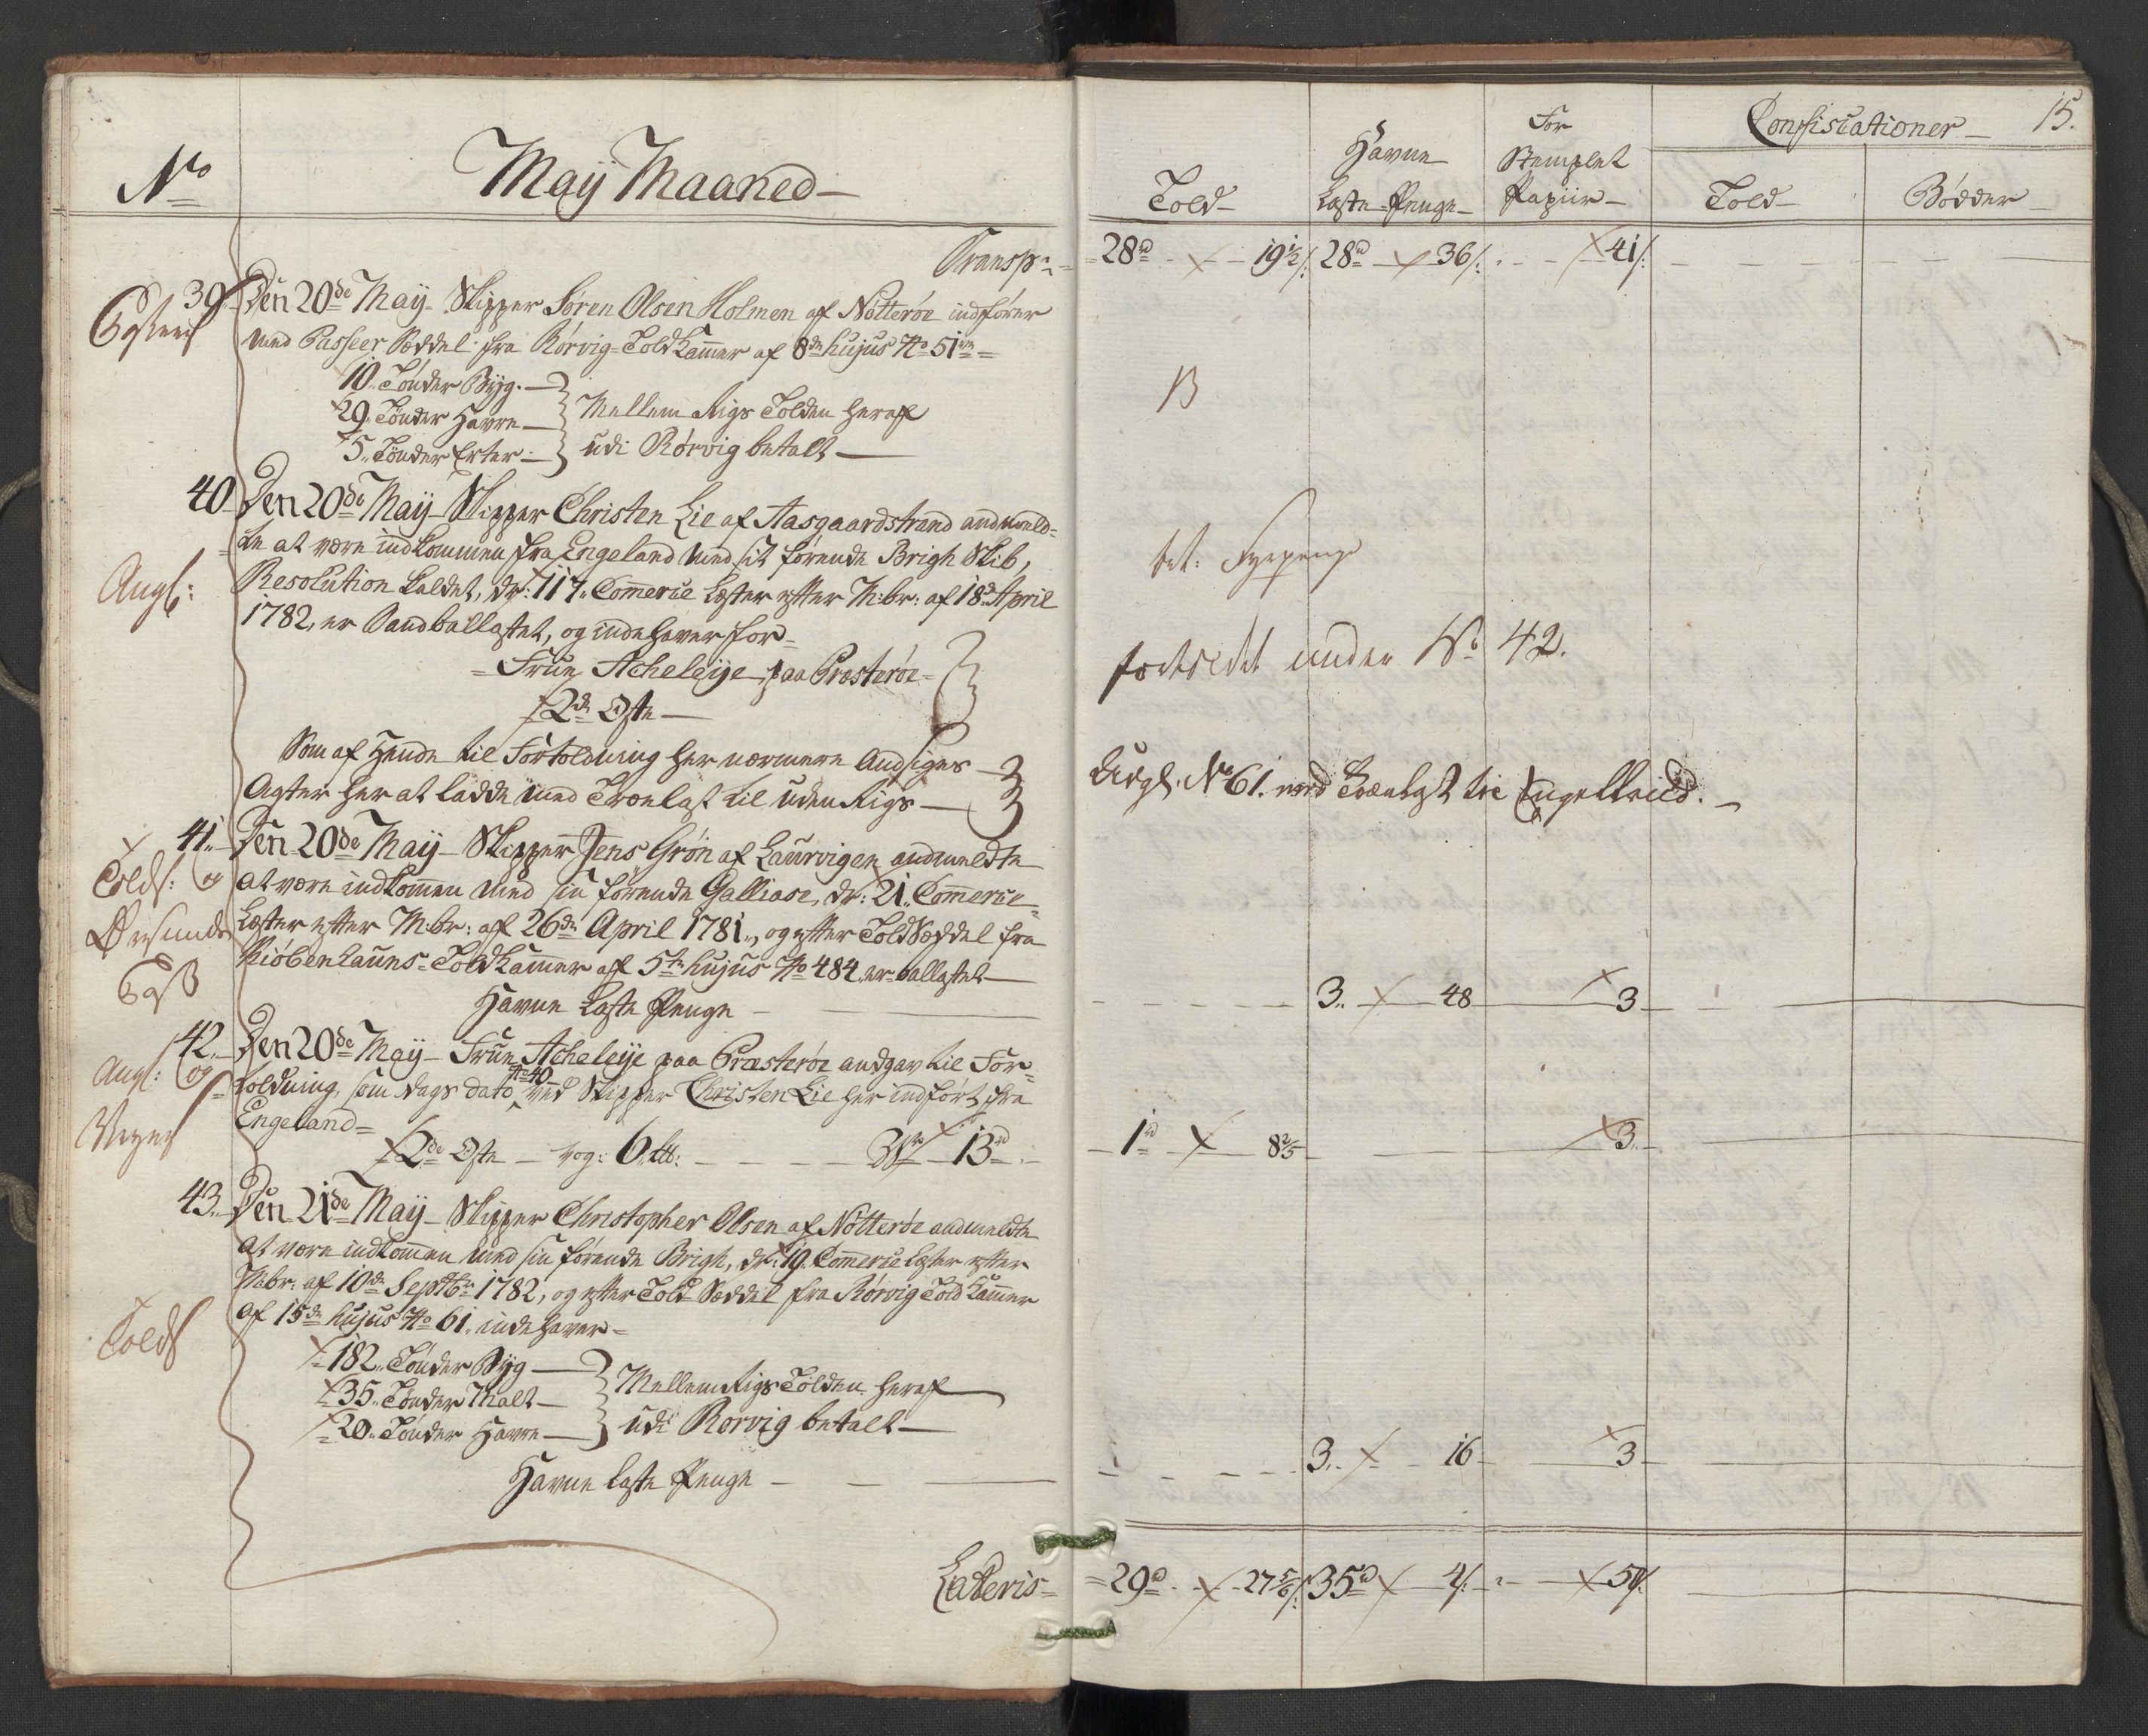 No
Maÿ Maaned
Transp:
39. Den 20de Maÿ Skipper Søren Olsen Holmen af Nøtterøe indfører
med Passeer Sæddel fra Rørvig Told Kammer af 8de hujus No 51
10. Tønder Bÿg.
29. Tønder Havre
5. Tønder Erter
Mellem Rigs Tolden heraf
udi Rørvig betalt
40 Den 20de Maÿ Skipper Christen Lie af Aasgaardstrand andmeld-
te at være indkommen fra Engeland med sit førende Brigh Skib,
Angl:
Resolution kaldet, dr: 117. Commerce Læster efter M:br: af 18de April
1782, er Sandballastet, og indehaver for
Frue Acheleÿe paa Præsterøe
2de Oste
Som af Hende til Fortoldning her nærmere Andgives
Agter her at ladde med Trælast til uden Rigs
41. Den 20de Maÿ Skipper Jens Grøn af Laurvigen andmeldte
Tolds: og
at være indkommen med sin førende Galliase, dr: 21. Commerce
Øresunds
Læster efter M:br: af 26de April 1781, og efter Told Sæddel fra
Kiøbenhauns Told Kammer af 5te hujus No 484 er ballastet
Havne Laste Penge
42. Den 20de Maÿ Frue Acheleÿe paa Præsterøe andgav til For-
Angl: og
toldning, som dags dato No 40 ved Skipper Christen Lie her indført fra
Engeland
2de Oste vog: 6 lb: 13rd
43. Den 21de Maÿ Skipper Christopher Olsen af Nøtterøe andmeldte
at være indkommen med sin førende Brigh, dr: 19. Commerce Læster efter
M:br: af 10de Septbr 1782, og efter Told Sæddel fra Rørvig Told Kammer
Tolds
af 15de hujus No 61. indehaver
182. Tønder Bÿg
35. Tønder Malt
20. Tønder Havre
Mellem Rigs Tolden heraf
udi Rørvig betalt
Havne Laste Penge
Lateris
15.
Told
Havne
Læste Penge
For
Stemplet
Papiir
Confiscationer
Told
Bødder
28rd 19½ 28rd 36 41
bet: Fyrpenge
fortoldet under No 42.
Udgl: No 61. med Trælast til Engelland.
3. 48 3
1rd 8⅖ 3
3. 16 3
29rd 27⅚ 35rd 4 50